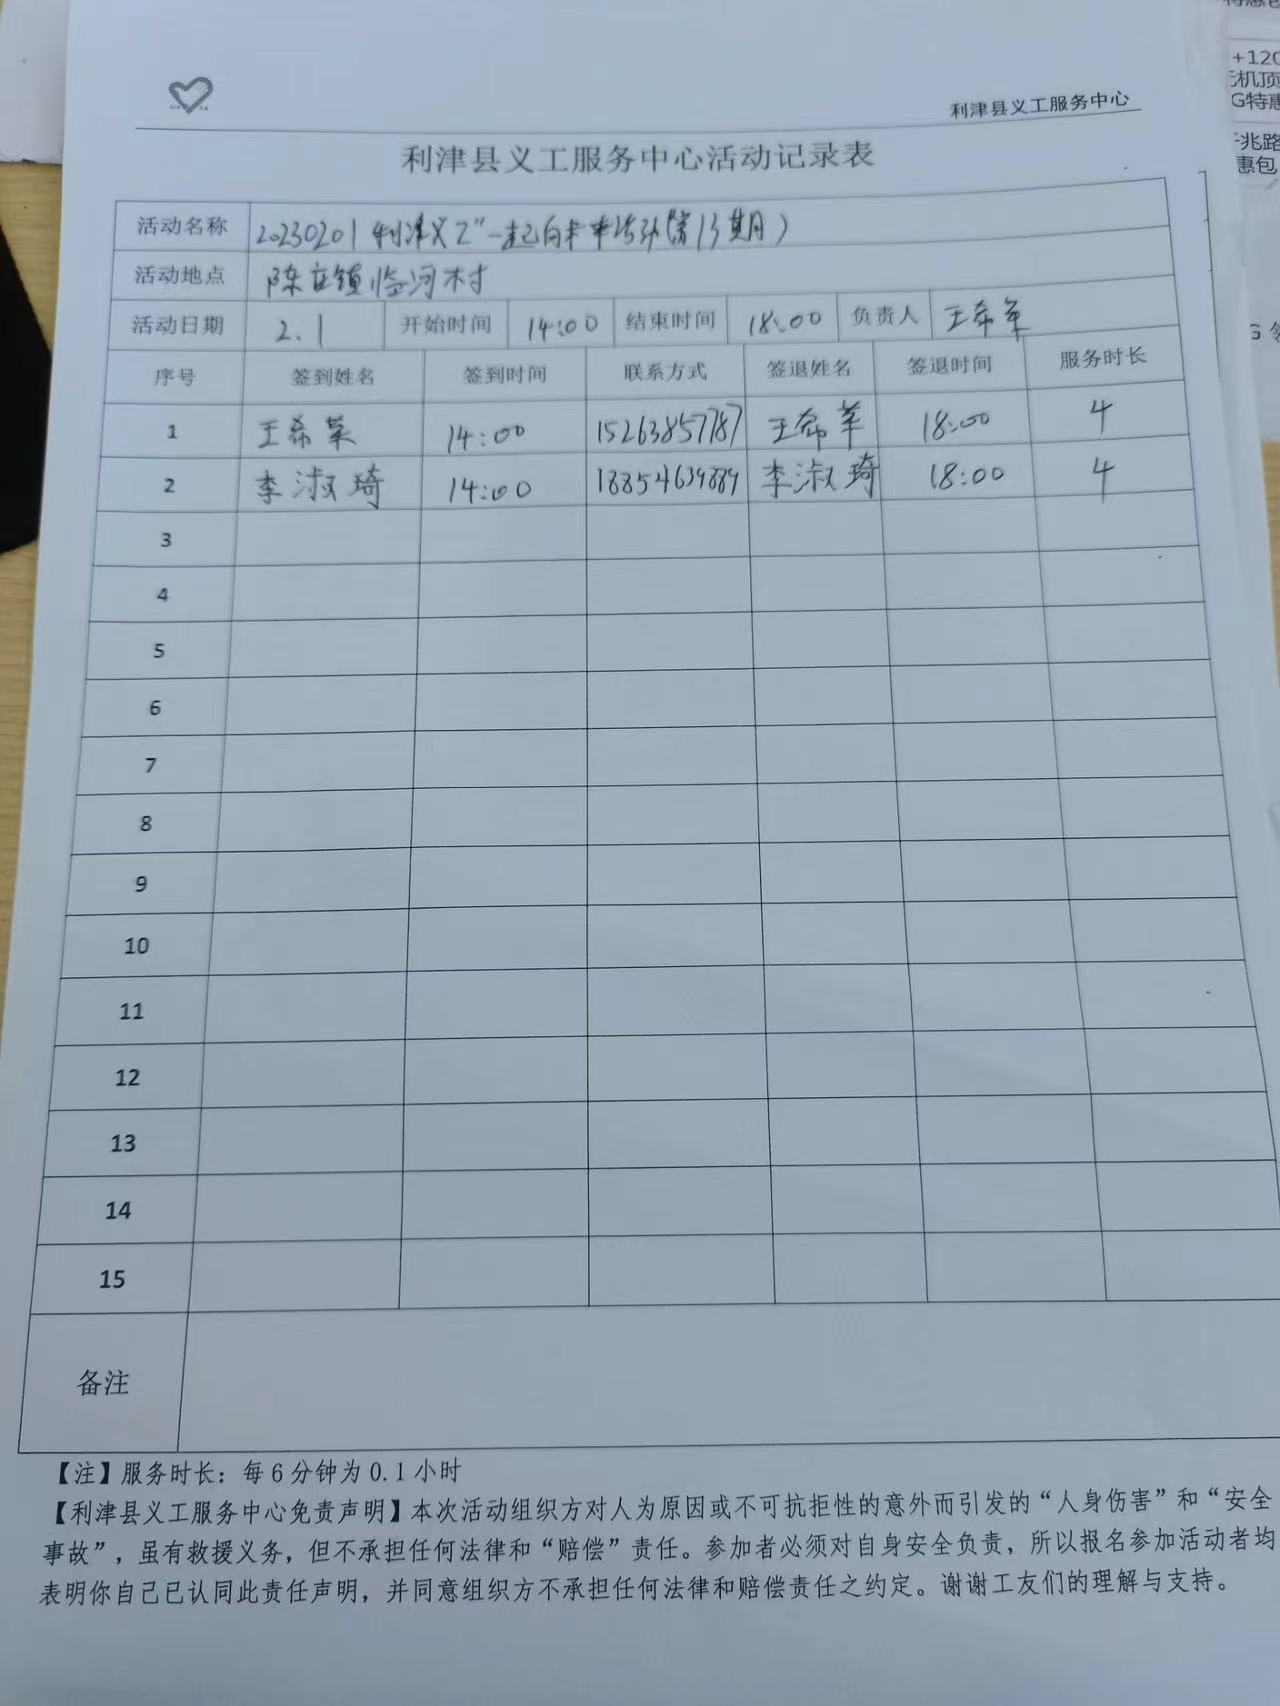 利津县义工服务中心
利津县义工服务中心活动记录表
活动名称 20230201利津义工"一起向未来活动(第13期)
活动地点 陈庄镇临河村
活动日期 2.1 开始时间 14:00 结束时间 18:00 负责人 王希军
序号 签到姓名 签到时间 联系方式 签退姓名 签退时间 服务时长
1 王希 14:00 15263857787 王希 18:00 4
2 李淑琦 14:00 18854639889 李淑琦 18:00 4
3
4
5
6
7
8
9
10
11
12
13
14
15
备注
【注】服务时长：每6分钟为0.1小时
【利津县义工服务中心免责声明】本次活动组织方对人为原因或不可抗拒性的意外而引发的“人身伤害”和“安全
事故”，虽有救援义务，但不承担任何法律和“赔偿”责任。参加者必须对自身安全负责，所以报名参加活动者均
表明你自己已认同此责任声明，并同意组织方不承担任何法律和赔偿责任之约定。谢谢工友们的理解与支持。
+120
机顶
G特惠
兆路
惠包